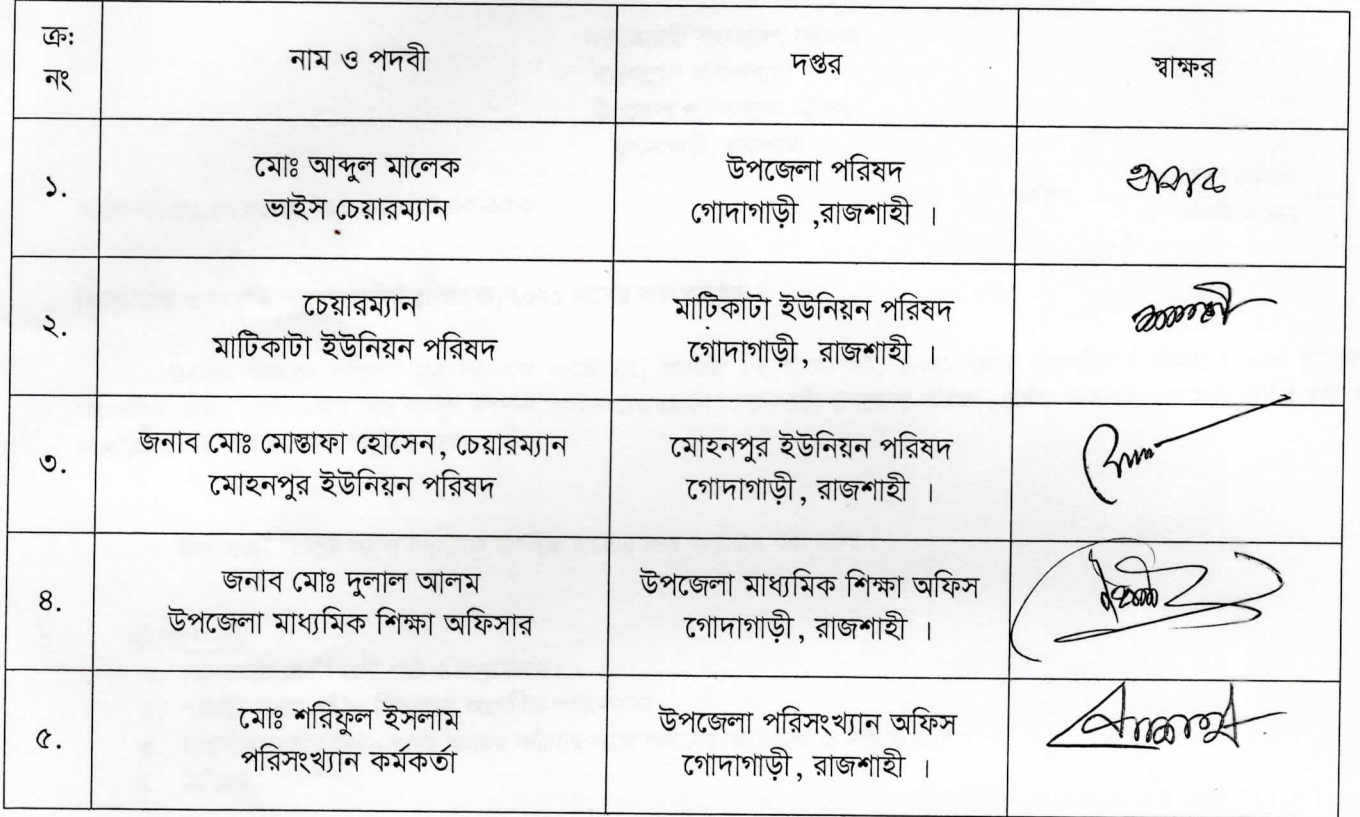 ক্র: নং	নাম ও পদবী	দপ্তর	স্বাক্ষর
১.	মোঃ আব্দুল মালেক	উপজেলা পরিষদ
ভাইস চেয়ারম্যান	গোদাগাড়ী ,রাজশাহী ।
২.	চেয়ারম্যান	মাটিকাটা ইউনিয়ন পরিষদ
মাটিকাটা ইউনিয়ন পরিষদ	গোদাগাড়ী, রাজশাহী ।
৩.	জনাব মোঃ মোস্তাফা হোসেন, চেয়ারম্যান	মোহনপুর ইউনিয়ন পরিষদ
মোহনপুর ইউনিয়ন পরিষদ	গোদাগাড়ী, রাজশাহী ।
৪.	জনাব মোঃ দুলাল আলম	উপজেলা মাধ্যমিক শিক্ষা অফিস
উপজেলা মাধ্যমিক শিক্ষা অফিসার	গোদাগাড়ী, রাজশাহী ।
৫.	মোঃ শরিফুল ইসলাম	উপজেলা পরিসংখ্যান অফিস
পরিসংখ্যান কর্মকর্তা	গোদাগাড়ী, রাজশাহী ।